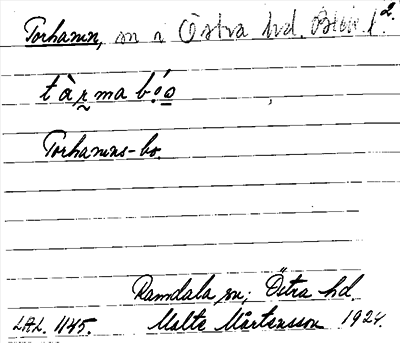 Torhamn, sn i Östra hd. Blek. l. 2.
tàrmabóo
Torhamns-bo.
Ramdala sn; Östra hd.
LAL. 1145. Malte Mårtensson 1924.